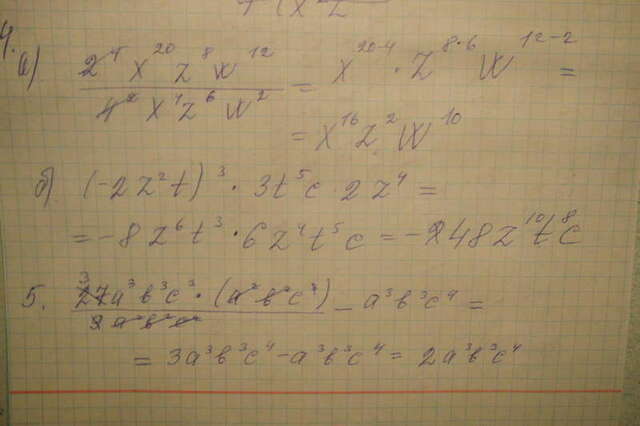 4.
а) 2⁴ x²⁰ z⁸ w¹² / 4² x⁴ z⁶ w² = x²⁰⁻⁴ · z⁸·⁶ w¹²⁻² =
= x¹⁶ z² w¹⁰
б) (-2z²t)³ · 3t⁵c · 2z⁴ =
= -8z⁶t³ · 6z⁴t⁵c = -48z¹⁰t⁸c
5. 27a³b³c³ · (a²b²c²) / 9a²b²c² - a³b³c⁴ =
= 3a³b³c⁴ - a³b³c⁴ = 2a³b³c⁴